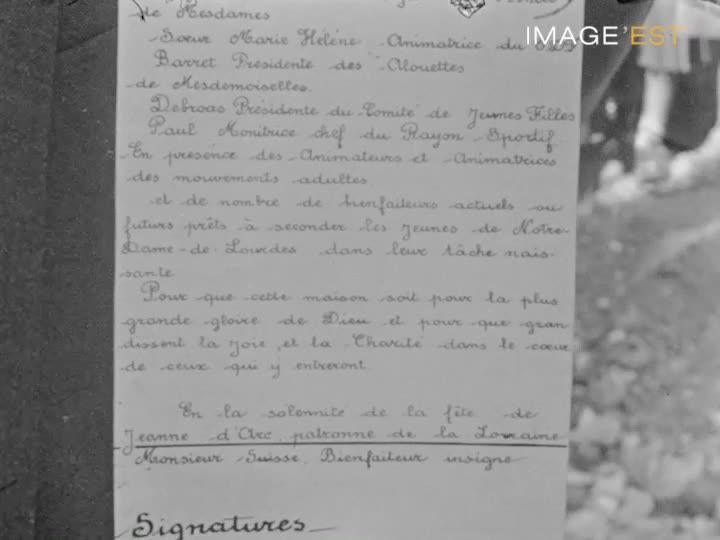 de Mesdames
IMAGE'EST
Soeur Marie Hélène Animatrice du
Barret Présidente des Alouettes
de Mesdemoiselles.
Debroas Présidente du Comité de Jeunes Filles
Paul Monitrice chef du Rayon Sportif
En présence des Animateurs et Animatrices
des mouvements adultes
et de nombre de bienfaiteurs actuels ou
futurs prêts à seconder les Jeunes de Notre-
Dame-de-Lourdes dans leur tâche nais-
sante
Pour que cette maison soit pour la plus
grande gloire de Dieu et pour que gran
dissent la Joie et la Charité dans le coeur
de ceux qui y entreront
En la solennité de la fête de
Jeanne d'Arc, patronne de la Lorraine
Monsieur Suisse, Bienfaiteur insigne
Signatures